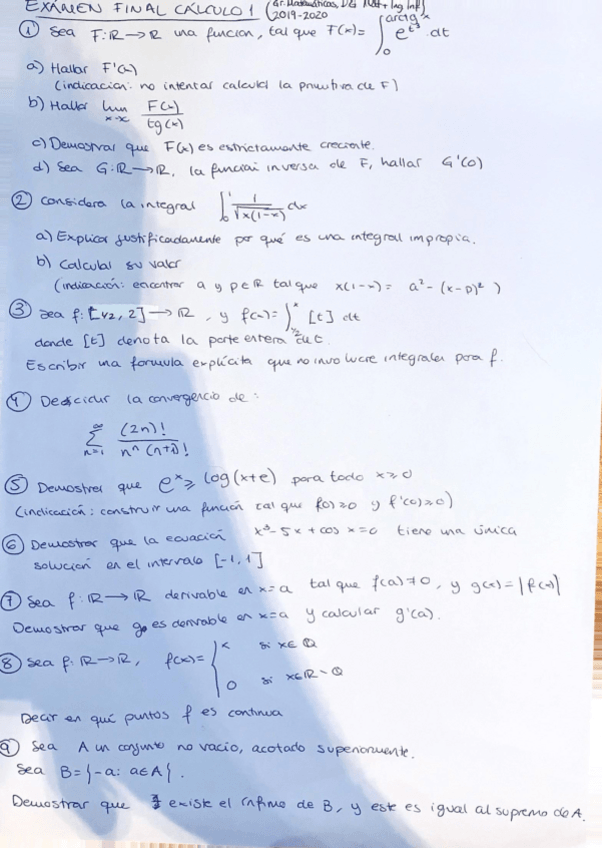 EXÁMEN FINAL CÁLCULO 1 (Gr. Matemáticas, DG
2019-2020
① Sea F: ℝ → ℝ una función, tal que F(x) = ∫₀^{arctg x} e^{t³} dt
a) Hallar F'(x)
(indicación: no intentar calcular la primitiva de F)
b) Hallar lim F(x)/tg(x)
c) Demostrar que F(x) es estrictamente creciente.
d) Sea G: ℝ → ℝ, la función inversa de F, hallar G'(0)
② Considera la integral ∫₀¹ 1/√x(1-x) dx
a) Explicar justificadamente por qué es una integral impropia.
b) Calcular su valor
(indicación: encontrar a y p∈ℝ tal que x(1-x) = a² - (x-p)²)
③ Sea f: [1/2, 2] → ℝ, y f(x) = ∫_{1/2}^x [t] dt
donde [t] denota la parte entera de t.
Escribir una formula explícita que no involucre integrales para f.
④ Decidir la convergencia de:
∑_{n=1}^∞ (2n)! / nⁿ (n+1)!
⑤ Demostrar que eˣ ≥ log(x+e) para todo x ≥ 0
(indicación: construir una función tal que f(0) ≥ 0 y f'(0) ≥ 0)
⑥ Demostrar que la ecuación x³ - 5x + cos x = 0 tiene una única
solución en el intervalo [-1, 1]
⑦ Sea f: ℝ → ℝ derivable en x = a tal que f(a) ≠ 0, y g(x) = |f(x)|
Demostrar que g es derivable en x = a y calcular g'(a).
⑧ Sea f: ℝ → ℝ, f(x) = { x si x∈ℚ
0 si x∈ℝ-ℚ
Decir en qué puntos f es continua
⑨ Sea A un conjunto no vacío, acotado superiormente.
Sea B = {-a: a∈A}.
Demostrar que existe el ínfimo de B, y este es igual al supremo de A.